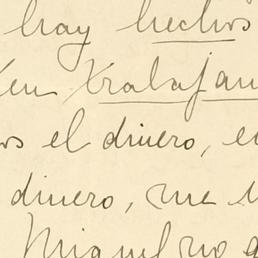 hay hechos
trabajan
el dinero,
dinero, me
Miguel no